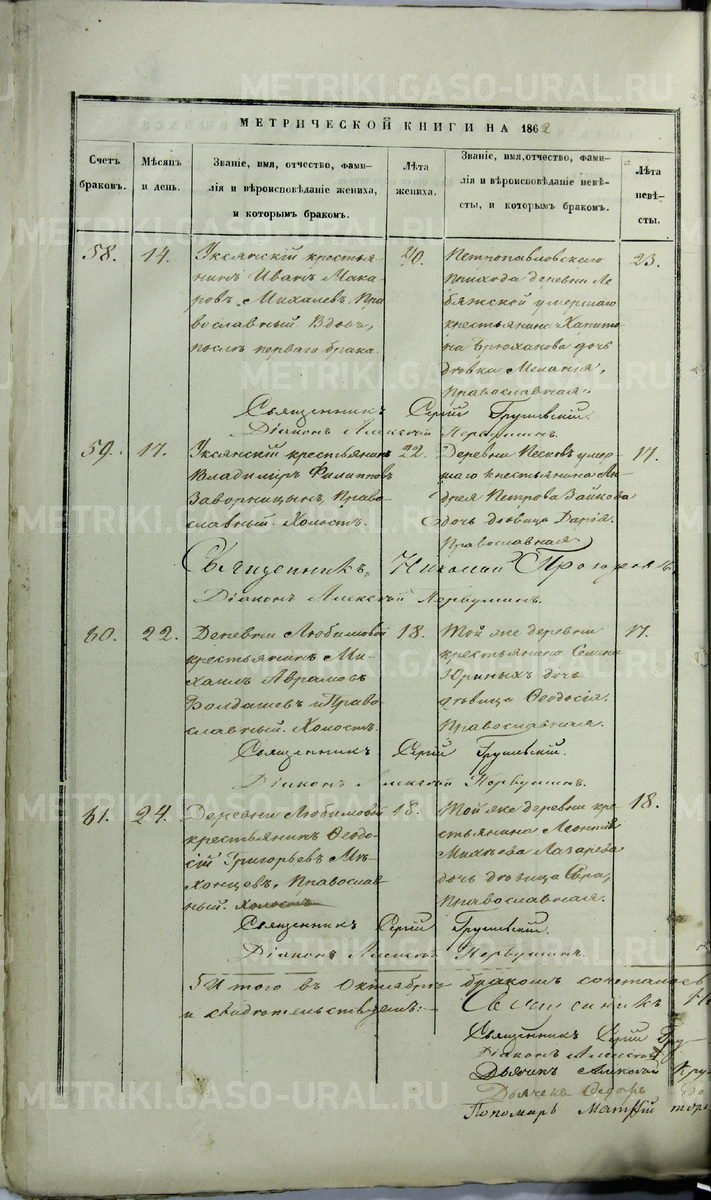 METRIKI.GASO-URAL.RU
МЕТРИЧЕСКОЙ КНИГИ НА 1862
Счетъ браковъ.
Мѣсяцъ и день.
Званіе, имя, отчество, фами-
лія и вѣроисповѣданіе жениха,
и которымъ бракомъ.
Лѣта жениха.
Званіе, имя, отчество, фами-
лія и вѣроисповѣданіе невѣ-
сты, и которымъ бракомъ.
Лѣта невѣ-
сты.
58.
14.
Уксянскій крестья-
нинъ Иванъ Мака-
ровъ Михалевъ, Пра
вославный. Вдовъ,
послѣ перваго брака.
Петропавловскаго
прихода деревни Ле
бяжской умершаго
крестьянина Харито
на Брюханова дочь
дѣвка Меланія,
православная.
23.
Священникъ Сергій
Діаконъ Алексѣй
59.
17.
Уксянскій крестьянинъ
Владиміръ Филипповъ
Заворницынъ, Право-
славный. Холостъ.
22.
Деревни Песковъ умер-
шаго крестьянина Ан
дрея Петрова Зайкова
дочь дѣвица Дарія,
Православная.
17.
Священникъ Николай
Діаконъ Алексѣй
60.
22.
Деревни Любимовой
крестьянинъ Ми-
хаилъ Аврамовъ
Болдашевъ, Право-
славный. Холостъ.
18.
Той же деревни
крестьянина Семена
Юриныхъ дочь
дѣвица Ѳеодосія,
Православная.
17.
Священникъ Сергій
Діаконъ Алексѣй
61.
24.
Деревни Любимовой
крестьянинъ Ѳеодо-
сій Григорьевъ Мѣ-
хонцевъ, Православ-
ный. Холостъ
18.
Той же деревни кре
стьянина Леонтія
Михѣева Лазарева
дочь дѣвица
Православная.
18.
Священникъ Сергій
Діаконъ Алексѣй
Итого въ Октябрѣ бракомъ сочеталось
и свидѣтельствуемъ:
Священникъ
Священникъ Сергій
Діаконъ Алексѣй
Дьячекъ Алексѣй
Дьячекъ Ѳедоръ
Пономарь Матѳій